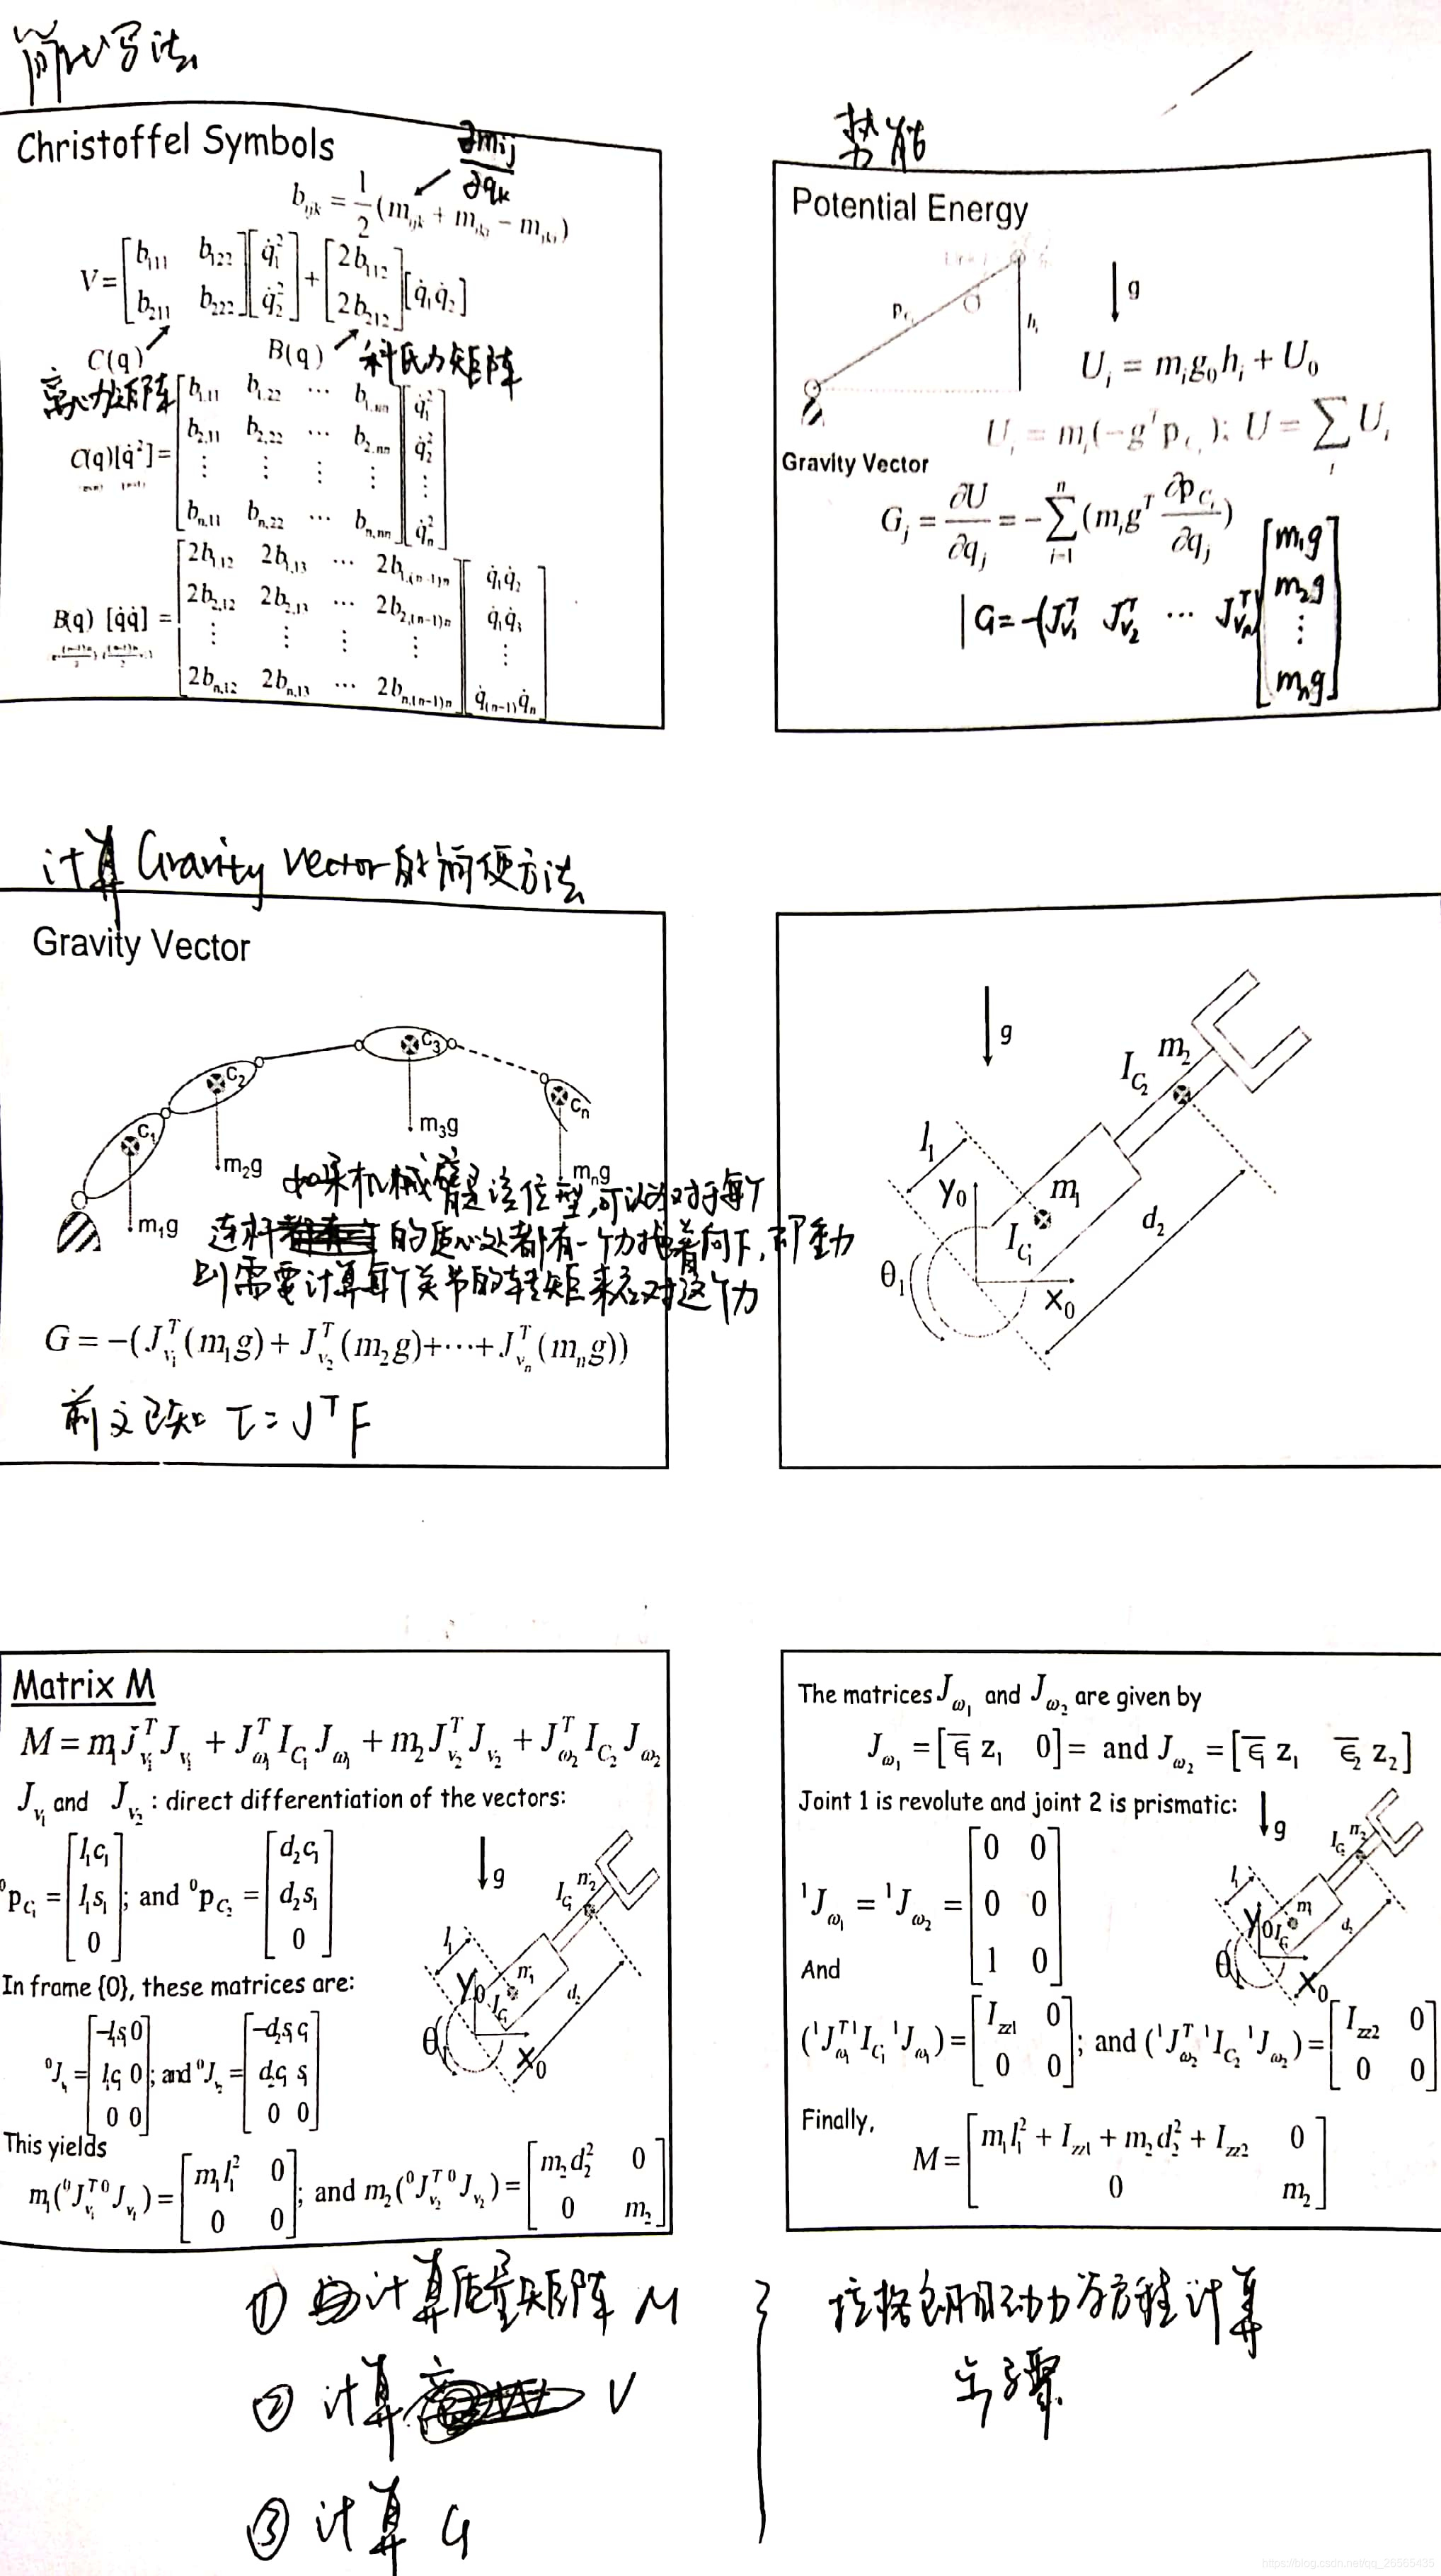 简化写法
Christoffel Symbols
∂mij
∂qk
b_ijk = 1/2 (m_ijk + m_ikj − m_jki)
V = [b_111 b_122; b_211 b_222] [q̇_1^2; q̇_2^2] + [2b_112; 2b_212] [q̇_1 q̇_2]
C(q) B(q) 科氏力矩阵
离心力矩阵
C(q)[q̇^2] = [b_1,11 b_1,22 ⋯ b_1,nn; b_2,11 b_2,22 ⋯ b_2,nn; ⋮ ⋮ ⋮ ⋮; b_n,11 b_n,22 ⋯ b_n,nn] [q̇_1^2; q̇_2^2; ⋮; q̇_n^2]
B(q) [q̇q̇] = [2b_1,12 2b_1,13 ⋯ 2b_1,(n−1)n; 2b_2,12 2b_2,13 ⋯ 2b_2,(n−1)n; ⋮ ⋮ ⋮ ⋮; 2b_n,12 2b_n,13 ⋯ 2b_n,(n−1)n] [q̇_1 q̇_2; q̇_1 q̇_3; ⋮; q̇_(n−1) q̇_n]
势能
Potential Energy
g
p_Ci
h_i
U_i = m_i g_0 h_i + U_0
U_i = m_i(−g^T p_Ci); U = ∑_i U_i
Gravity Vector
G_j = ∂U/∂q_j = −∑_{i=1}^{n} (m_i g^T ∂p_Ci/∂q_j)
G = −(J_v1^T J_v2^T ⋯ J_vn^T) [m1g; m2g; ⋮; mng]
计算Gravity vector的简便方法
Gravity Vector
C1 C2 C3 Cn
m1g m2g m3g mng
如果机械臂是该位型,可以认为对于每个
连杆的质心处都有一个力拽着向下,
则需要计算每个关节的转矩来应对这个力
G = −(J_v1^T (m_1g) + J_v2^T (m_2g) + ⋯ + J_vn^T (m_ng))
前文已知 τ = J^T F
g
m2
I_C2
l1
Y0
m1
I_C1
d2
θ1
X0
Matrix M
M = m_1 J_v1^T J_v1 + J_ω1^T I_C1 J_ω1 + m_2 J_v2^T J_v2 + J_ω2^T I_C2 J_ω2
J_v1 and J_v2 : direct differentiation of the vectors:
^0p_C1 = [l_1c_1; l_1s_1; 0]; and ^0p_C2 = [d_2c_1; d_2s_1; 0]
g
In frame {0}, these matrices are:
^0J_v1 = [−l_1s_1 0; l_1c_1 0; 0 0]; and ^0J_v2 = [−d_2s_1 c_1; d_2c_1 s_1; 0 0]
This yields
m_1(^0J_v1^T ^0J_v1) = [m_1l_1^2 0; 0 0]; and m_2(^0J_v2^T ^0J_v2) = [m_2d_2^2 0; 0 m_2]
The matrices J_ω1 and J_ω2 are given by
J_ω1 = [ϵ̄_1 z_1 0] = and J_ω2 = [ϵ̄_1 z_1 ϵ̄_2 z_2]
Joint 1 is revolute and joint 2 is prismatic:
g
^1J_ω1 = ^1J_ω2 = [0 0; 0 0; 1 0]
And
(^1J_ω1^T ^1I_C1 ^1J_ω1) = [I_zz1 0; 0 0]; and (^1J_ω2^T ^1I_C2 ^1J_ω2) = [I_zz2 0; 0 0]
Finally,
M = [m_1l_1^2 + I_zz1 + m_2d_2^2 + I_zz2 0; 0 m_2]
① 计算质量矩阵 M
② 计算 V
③ 计算 G
拉格朗日动力学方程计算
步骤
https://blog.csdn.net/qq_26565435